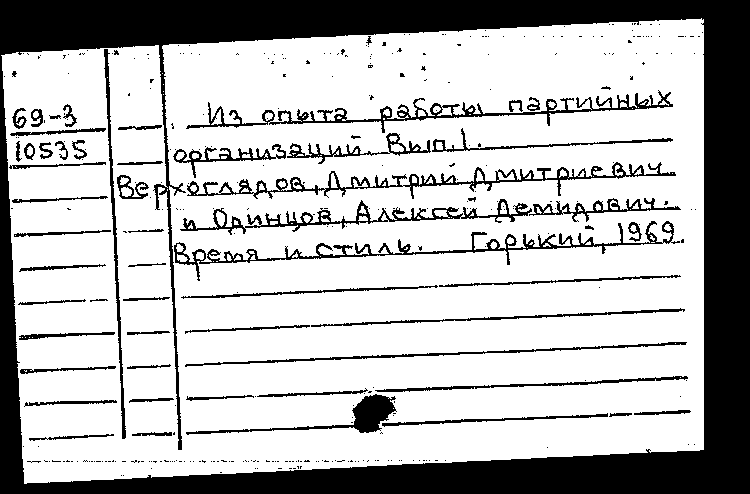 69-3 Из опыта работы партийных
10535 организаций. Вып. 1.
Верхоглядов, Дмитрий Дмитриевич
и Одинцов, Алексей Демидович.
Время и стиль. Горький, 1969.